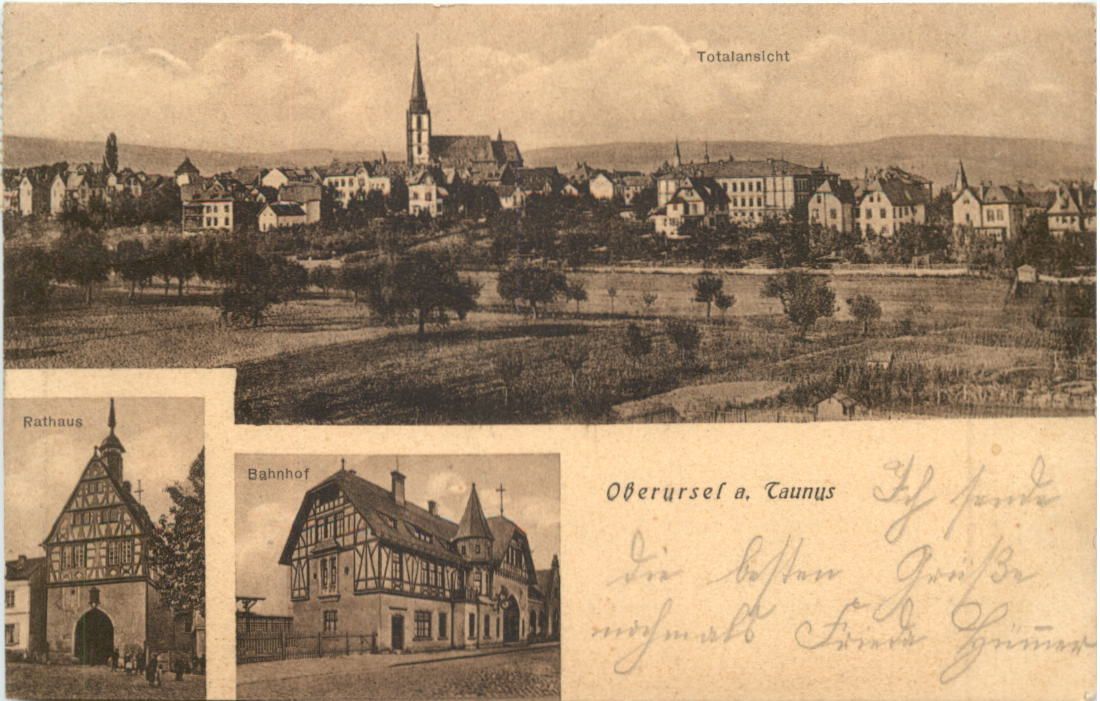 Totalansicht
Rathaus
Bahnhof
Oberursel a. Taunus
Ich sende
die besten Grüße
nochmals Frieda